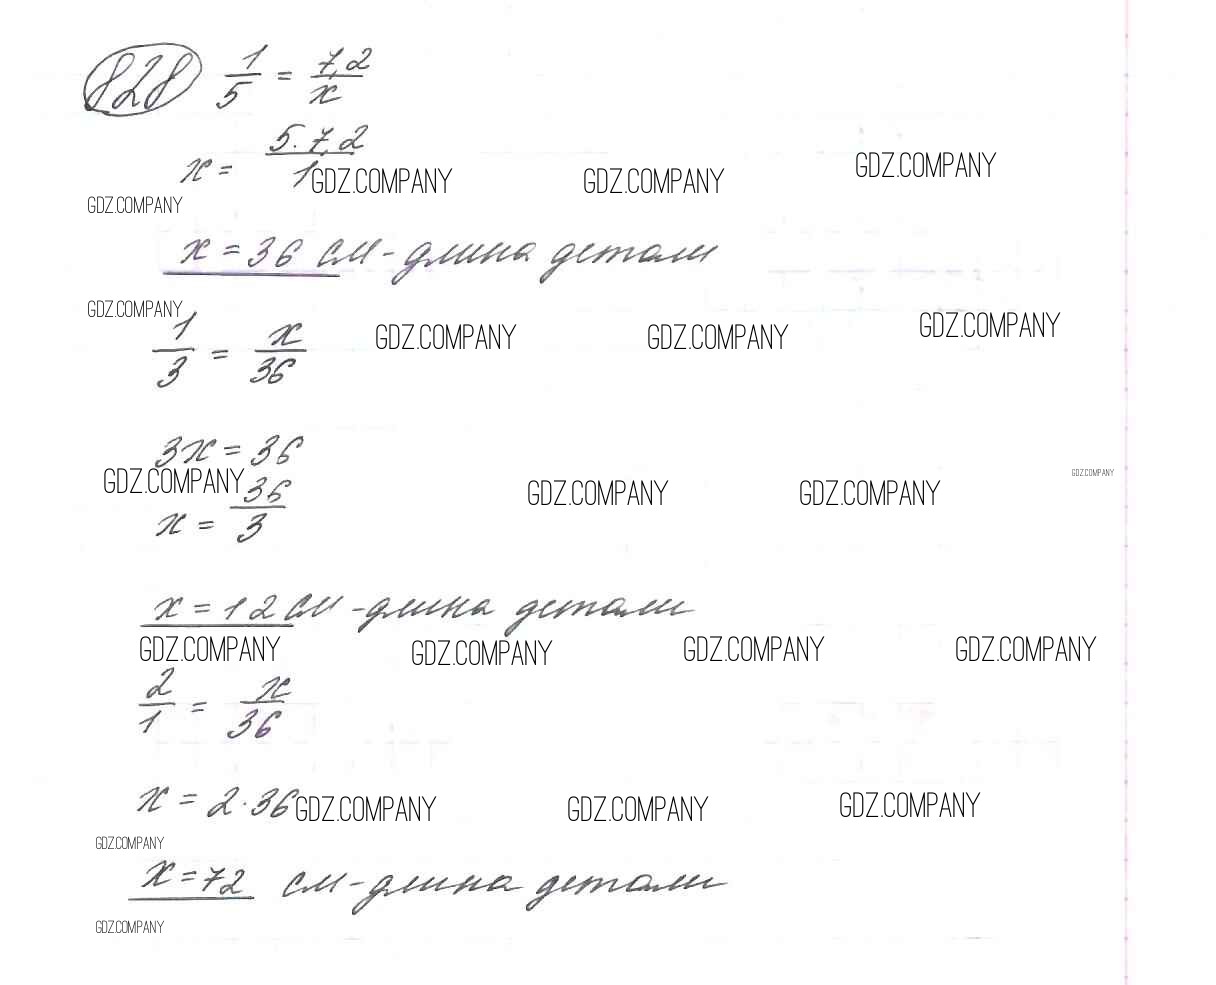 828 1/5 = 7,2/x
x = 5·7,2/1
GDZ.COMPANY GDZ.COMPANY GDZ.COMPANY
GDZ.COMPANY
x = 36 см - длина детали
GDZ.COMPANY
1/3 = x/36
GDZ.COMPANY GDZ.COMPANY GDZ.COMPANY
3x = 36
GDZ.COMPANY GDZ.COMPANY GDZ.COMPANY GDZ.COMPANY
x = 36/3
x = 12 см - длина детали
GDZ.COMPANY GDZ.COMPANY GDZ.COMPANY GDZ.COMPANY
2/1 = x/36
x = 2·36
GDZ.COMPANY GDZ.COMPANY GDZ.COMPANY
GDZ.COMPANY
x = 72 см - длина детали
GDZ.COMPANY